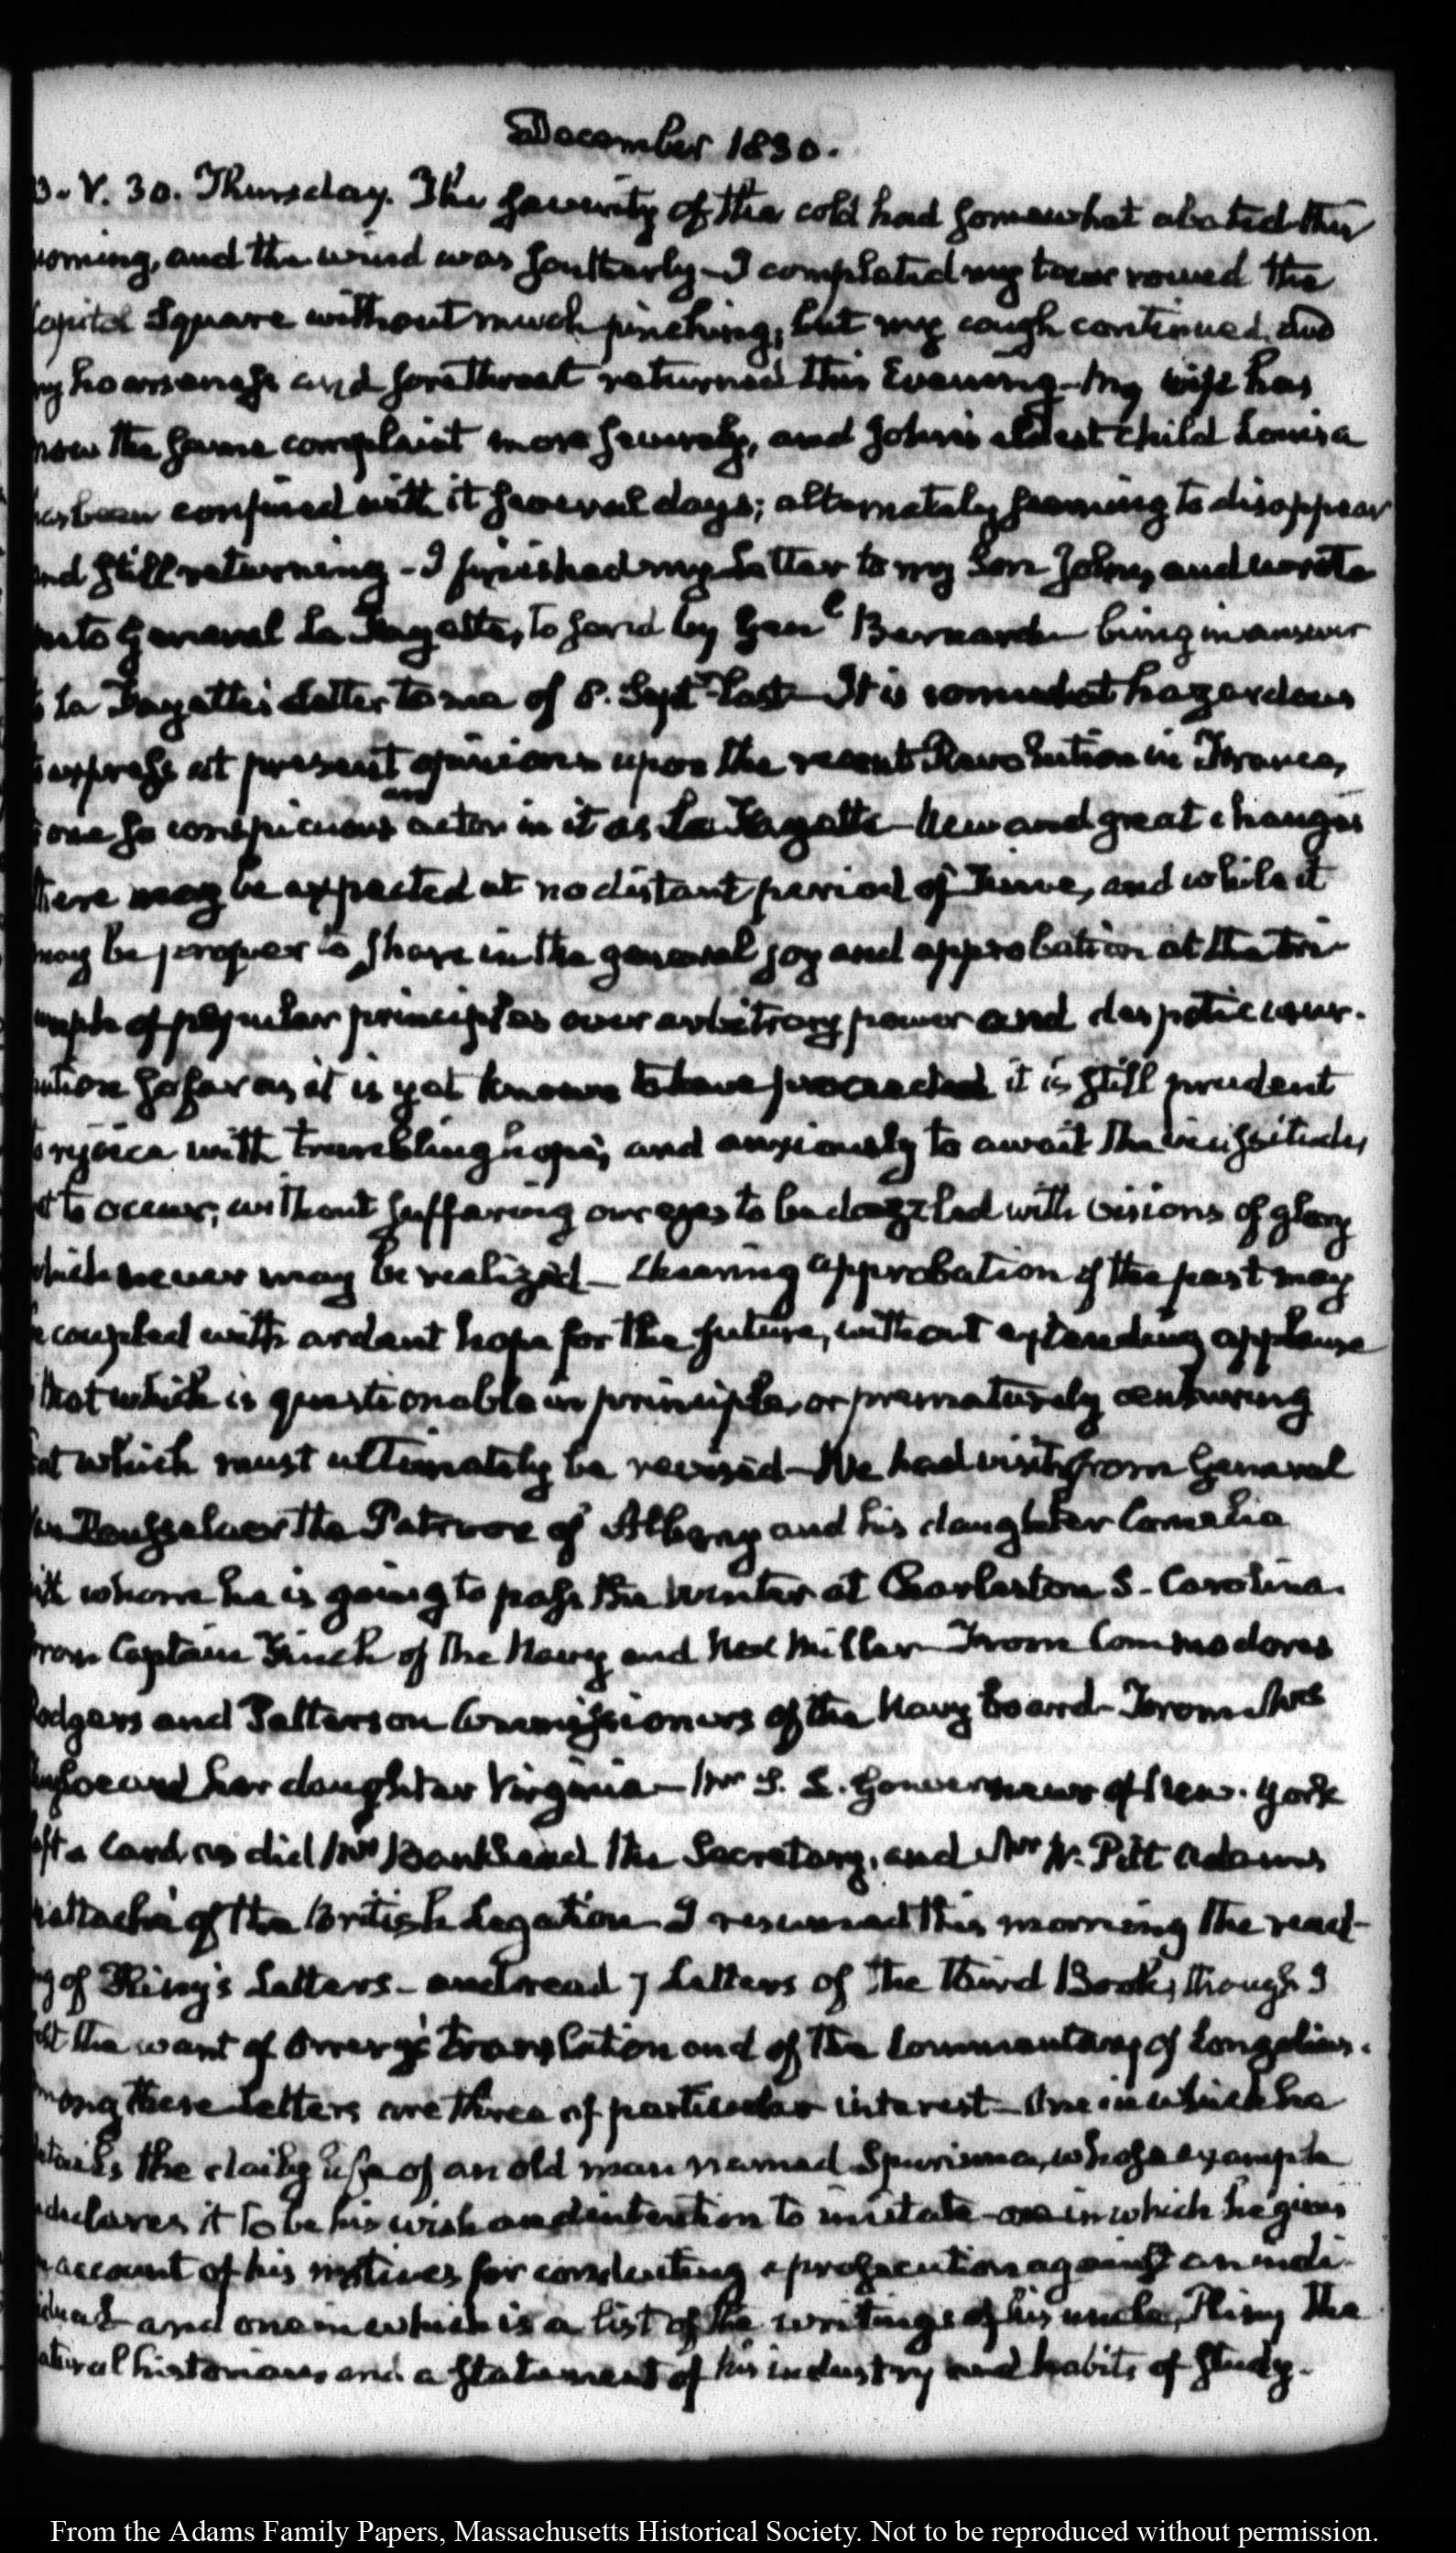 December 1830.
V. 30. Thursday. The severity of the cold had somewhat abated this
morning, and the wind was Southerly - I completed my tour round the
Capitol Square without much pinching; but my cough continued, and
my hoarseness and sore throat returned this Evening - My wife has
now the same complaint more severely, and John's eldest child Louisa
has been confined with it several days; alternately seeming to disappear
and still returning - I finished my Letter to my Son John, and wrote
to General La Fayette, to send by Genl. Bernard being in answer
to La Fayette's Letter to me of 8. Septr. last - It is somewhat hazardous
to express at present opinions upon the recent Revolution in France,
one so conspicuous an actor in it as La Fayette - New and great changes
there may be expected at no distant period of Time, and while it
may be proper to share in the general joy and approbation at the tri-
umph of popular principles over arbitrary power and despotic usur-
pation so far as it is yet known to have proceeded it is still prudent
to rejoice with trembling hope; and anxiously to await the vicissitudes
yet to occur, without suffering our eyes to be dazzled with visions of glory
which never may be realized - Cheering approbation of the past may
be coupled with ardent hope for the future, without extending applause
that which is questionable in principle, or prematurely censuring
that which must ultimately be revised - We had visits from General
Van Rensselaer the Patroon of Albany and his daughter Cornelia
with whom he is going to pass the Winter at Charleston S- Carolina.
From Captain Finch of the Navy and Ned Miller - From Commodores
Rodgers and Patterson Commissioners of the Navy board - From Mrs
and her daughter Virginia - Mr S. L. Gouverneur of New-York
left a Card as did Mr Bankhead the Secretary, and Mr W. Pitt Adams
attaché of the British Legation - I resumed this morning the read-
ing of Pliny's Letters - and read 7 Letters of the Third Book, though I
felt the want of Orrery's translation and of the Commentary of Longolius.
Among these Letters are three of particular interest - One in which he
details the daily life of an old man named Spurinna, whose example
declares it to be his wish and intention to imitate - one in which he gives
account of his motives for conducting a prosecution against an indi-
vidual and one in which is a list of the writings of his uncle, Pliny the
natural historian and a statement of his industry and habits of study.
From the Adams Family Papers, Massachusetts Historical Society. Not to be reproduced without permission.